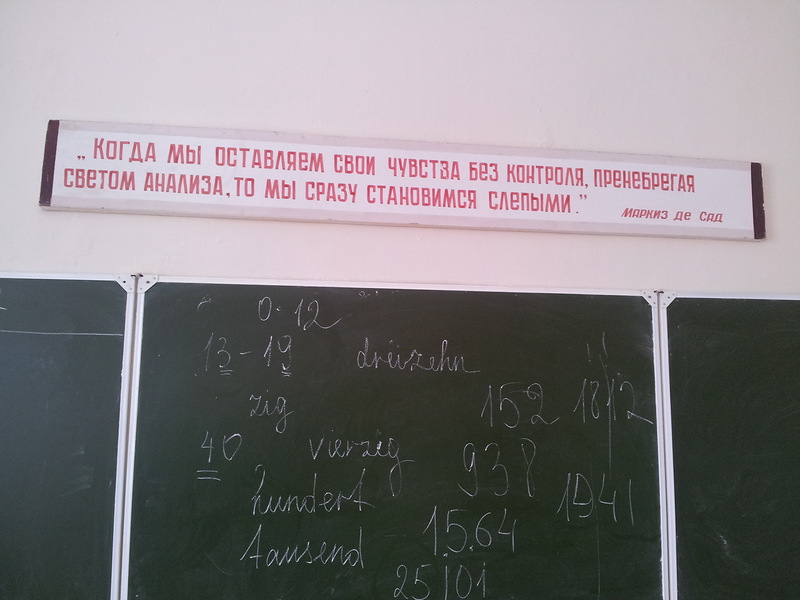 „Когда мы оставляем свои чувства без контроля, пренебрегая
светом анализа, то мы сразу становимся слепыми.”
Маркиз де Сад
0-12
13-19 dreizehn
zig 152 1812
40 vierzig 938
hundert 1941
tausend 1564
25101